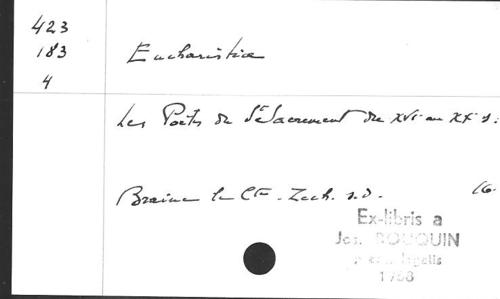 423
183
4
Eucharistie
Les Poètes du St Sacrement du XVIe au XXe s.
Braine le Cte - Zech. s.d. 16.
Ex-libris a
Jos. BOUQUIN
1968